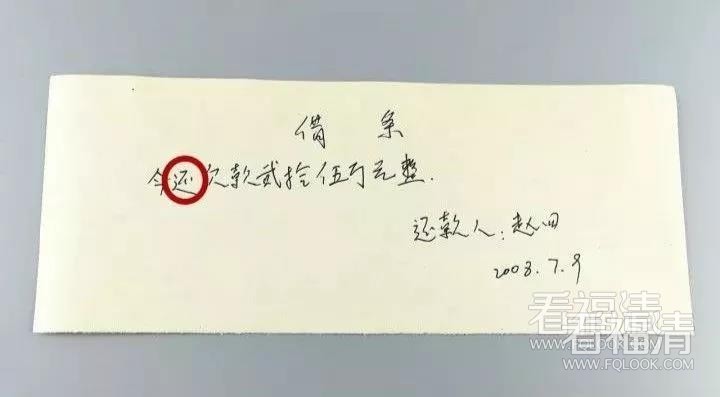 借 条
今还欠款贰拾伍万元整.
还款人:赵四
2003.7.9
看福清
看福清
WWW.FQLOOK.COM